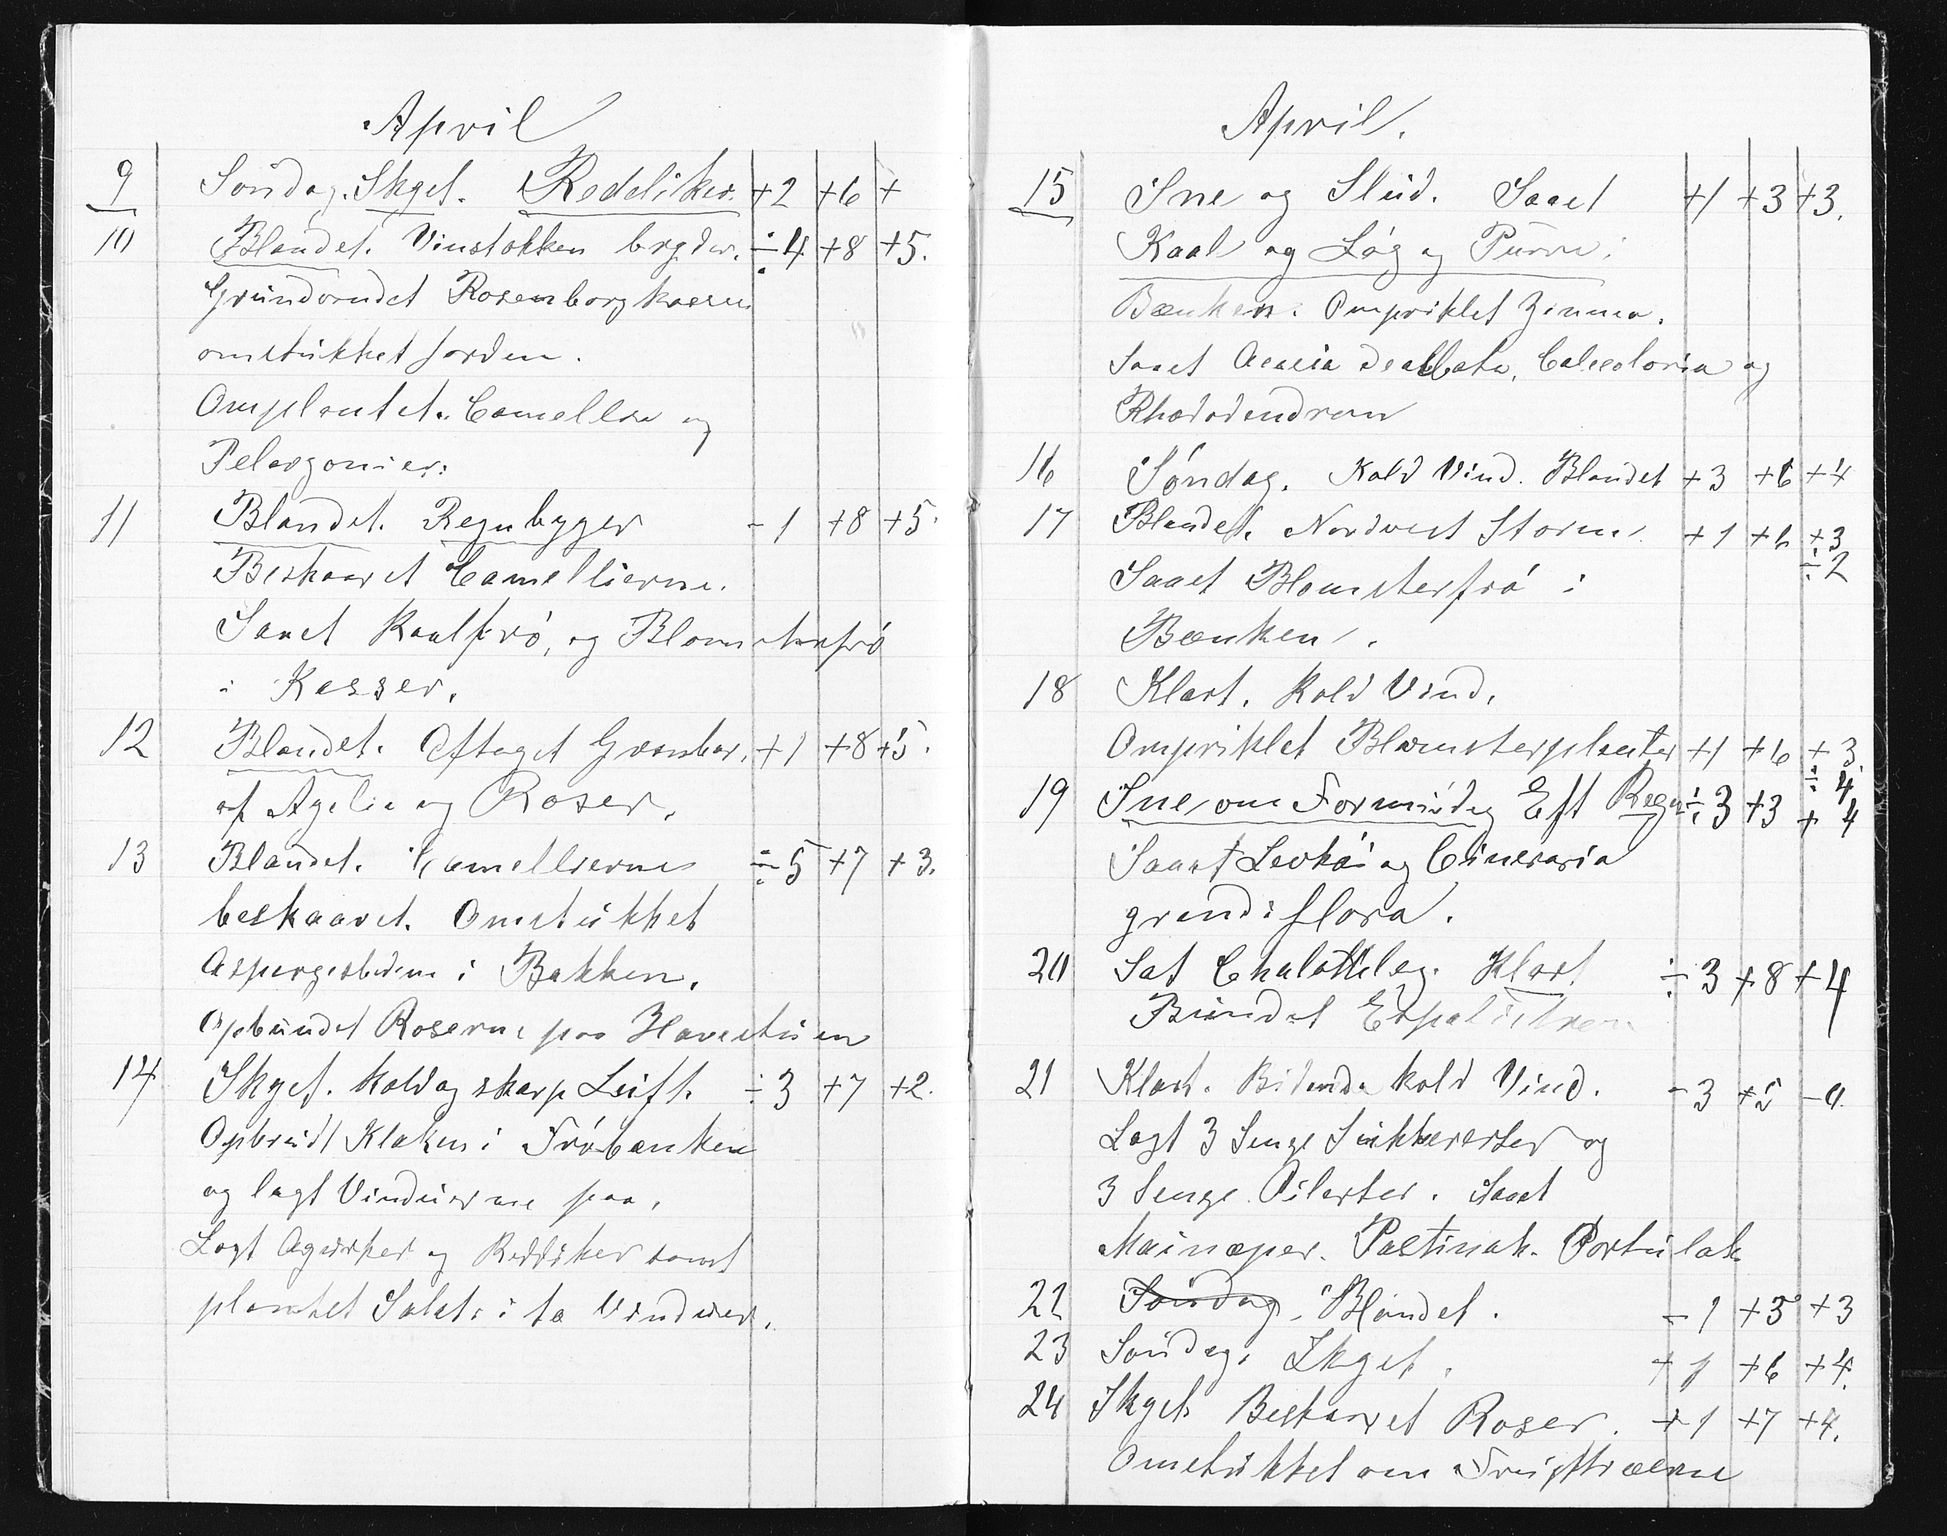 April
9 Søndag. Skyet. Redeliker. +2 +6 +
10 Blandet. Vinstokken bryder. ÷4 +8 +5.
Grundvandet Rosenborgkassen
omstukket Jorden.
Omplantet. Camellia og
Pelargonier.
11 Blandet. Regnbyger -1 +8 +5.
Beskaaret Camellierne.
Saaet Kaalfrö, og Blomsterfrö
i Kasser.
12 Blandet. Aftaget Granbar. +1 +8 +5.
af Azalia og Roser.
13 Blandet. Camellierne ÷5 +7 +3.
beskaaret. Omstukket
Aspergesbedene i Bakken.
Opbundet Roserne paa Havestuen
14 Skyet. Kold og skarp Luft. ÷3 +7 +2.
Opbrudt Klaken i Fröbænken
og lagt Vinduerne paa.
Lagt Agurker og Reddiker samt
plantet Salat i to Vinduer.
April.
15 Sne og Slud. Saaet +1 +3 +3.
Kaal og Løg og Purre i
Bænken. Ompriklet Zinnia.
Saaet Acacia dealbata, Calceolaria og
Rhododendron
16 Søndag. Kold Vind. Blandet +3 +6 +4
17 Blandet. Nordvest Storm. +1 +6 +3
÷2
Saaet Blomsterfrö i
Bænken.
18 Klart. Kold Vind.
Ompriklet Blomsterplanter +1 +6 +3.
÷4
19 Sne om Formiddag Eft Regn ÷3 +3 +4
Saaet Levköi og Cineraria
grandiflora.
20 Sat Chalotteløg. Klart ÷3 +8 +4
Bundet Espaliétræer
21 Klart. Bidende kold Vind. -3 +5 -0.
Lagt 3 Senge Sukkerærter og
3 Senge Pilærter. Saaet
Mainæper. Pastinak. Portulak
22 Søndag. Blandet. -1 +3° +3
23 Søndag. Skyet. +1 +6 +4.
24 Skyet. Beskaaret Roser. +1 +7 +4.
Omstukket om Frugttræerne